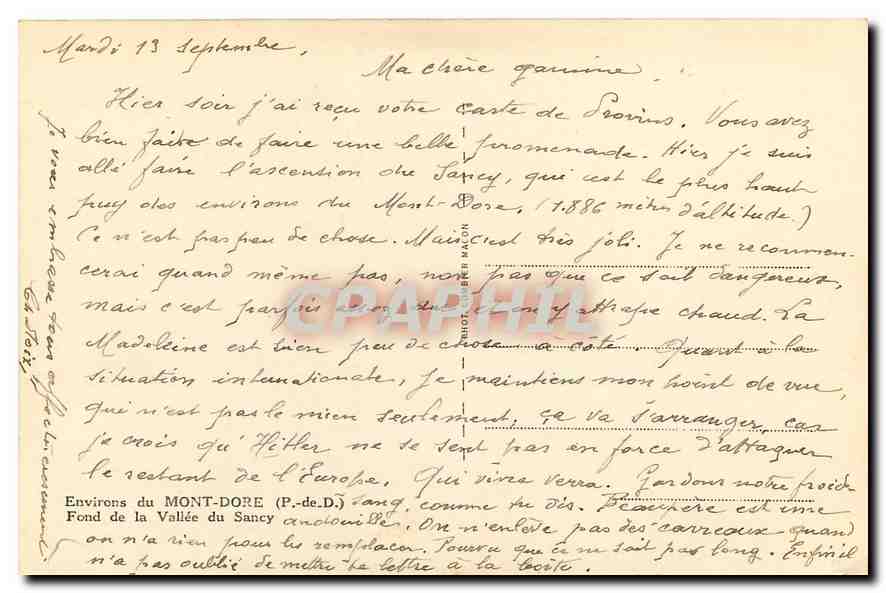 Mardi 13 septembre.
Ma chère gamine,
Hier soir j'ai reçu votre carte de Provins. Vous avez
bien faite de faire une belle promenade. Hier je suis
allé faire l'ascension du Sancy, qui est le plus haut
puy des environs du Mont-Dore. (1.886 mètres d'altitude.)
Ce n'est pas peu de chose. Mais c'est très joli. Je ne recommen-
cerai quand même pas, non pas que ce soit dangereux,
mais c'est parfois assez dur et on y attrape chaud. La
Madeleine est bien peu de chose à côté. Quant à la
situation internationale, je maintiens mon point de vue,
qui n'est pas le mien seulement, ça va s'arranger, car
je crois qu'Hitler ne se sent pas en force d'attaquer
le restant de l'Europe. Qui vivra verra. Gardons notre froid
sang, comme tu dis. Beaupère est une
andouille. On n'enlève pas des carreaux quand
on n'a rien pour les remplacer. Pourvu que ce ne soit pas long. Enfin il
n'a pas oublié de mettre la lettre à la boîte.
Je vous embrasse tous affectueusement.
Environs du MONT-DORE (P.-de-D.)
Fond de la Vallée du Sancy
PHOT. COMBIER MACON
CPAPHIL